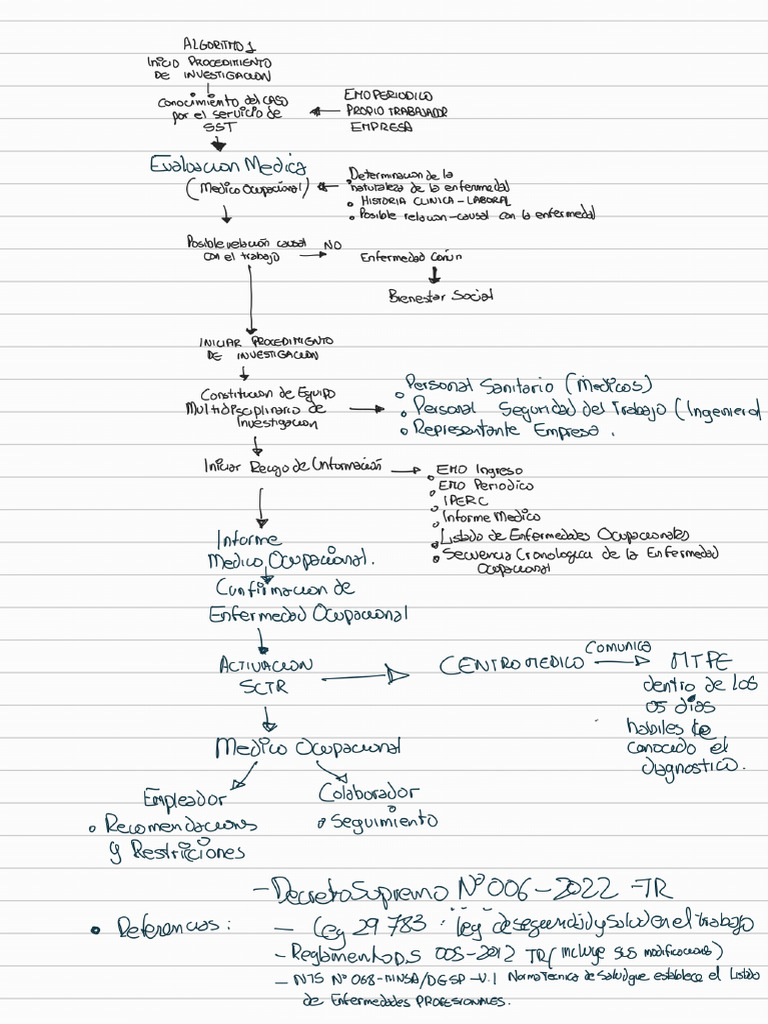 ALGORITMO 1
INICIO PROCEDIMIENTO
DE INVESTIGACION
Conocimiento del CASO
por el servicio de
SST
EMO PERIODICO
PROPIO TRABAJADOR
EMPRESA
Evaluacion Medica
(Medico Ocupacional)
Determinacion de la
naturaleza de la enfermedad
HISTORIA CLINICA - LABORAL
Posible relacion-causal con la enfermedad
Posible relacion causal
con el trabajo
NO
Enfermedad Común
Bienestar Social
INICIAR PROCEDIMIENTO
DE INVESTIGACION
Constitucion de Equipo
Multidisciplinario de
Investigacion
Personal Sanitario (Medicos)
Personal Seguridad del Trabajo (Ingeniero)
Representante Empresa.
Iniciar Recojo de Información
EMO Ingreso
EMO Periodico
IPERC
Informe Medico
Listado de Enfermedades Ocupacionales
Secuencia Cronologica de la Enfermedad
Ocupacional
Informe
Medico Ocupacional.
Confirmacion de
Enfermedad Ocupacional
ACTIVACION
SCTR
CENTRO MEDICO
COMUNICA
MTPE
dentro de los
05 días
habiles de
conocido el
diagnostico.
Medico Ocupacional
Empleador
Recomendaciones
y Restricciones
Colaborador
Seguimiento
- Decreto Supremo N° 006-2022-TR
Referencias:
- Ley 29783: Ley de seguridad y Salud en el trabajo
- Reglamento D.S 005-2012 TR (incluye sus modificaciones)
- NTS N° 068-MINSA/DGSP-V.1 Norma Tecnica de Salud que establece el Listado
de Enfermedades PROFESIONALES.